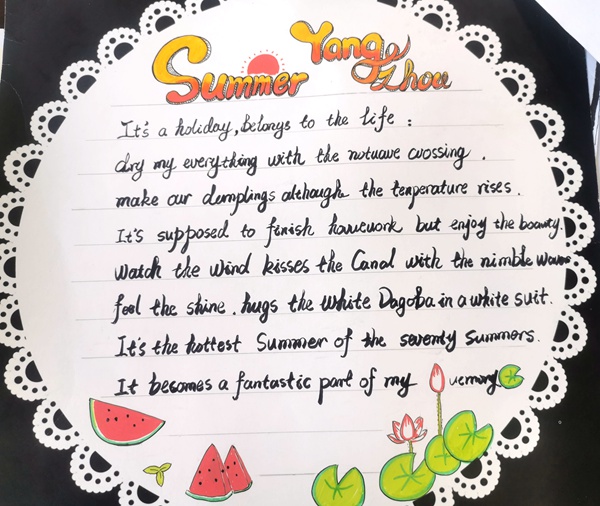 Summer Yang Zhou
It's a holiday, Belongs to the life :
dry my everything with the crossing.
make our dumplings although the temperature rises.
It's supposed to finish homework but enjoy the beauty.
Watch the wind kisses the Canal with the nimble waves
feel the shine. hugs the white Dagoba in a white suit.
It's the hottest Summer of the seventy Summers.
It becomes a fantastic part of my memory